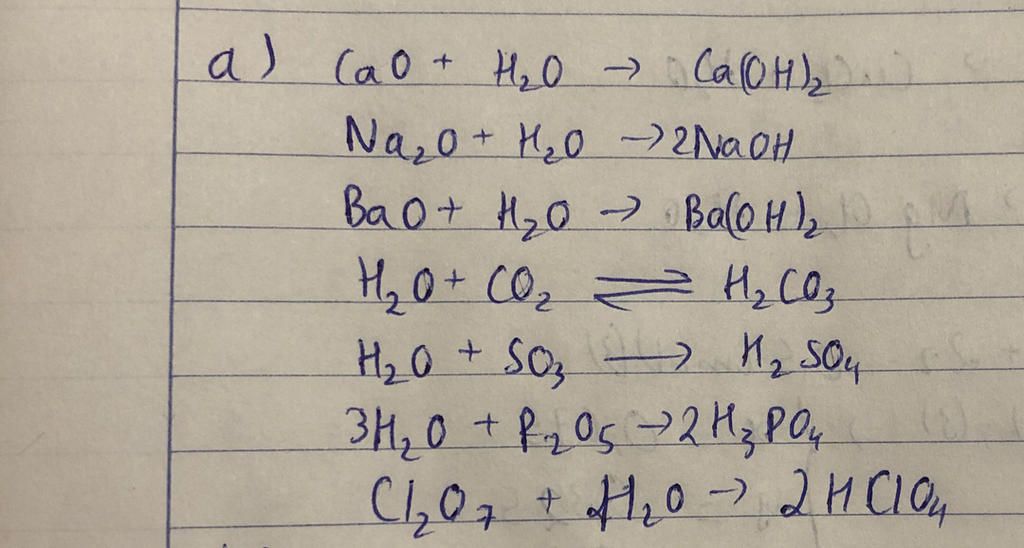 a) CaO + H₂O → Ca(OH)₂
Na₂O + H₂O → 2NaOH
BaO + H₂O → Ba(OH)₂
H₂O + CO₂ ⇌ H₂CO₃
H₂O + SO₃ → H₂SO₄
3H₂O + P₂O₅ → 2H₃PO₄
Cl₂O₇ + H₂O → 2HClO₄